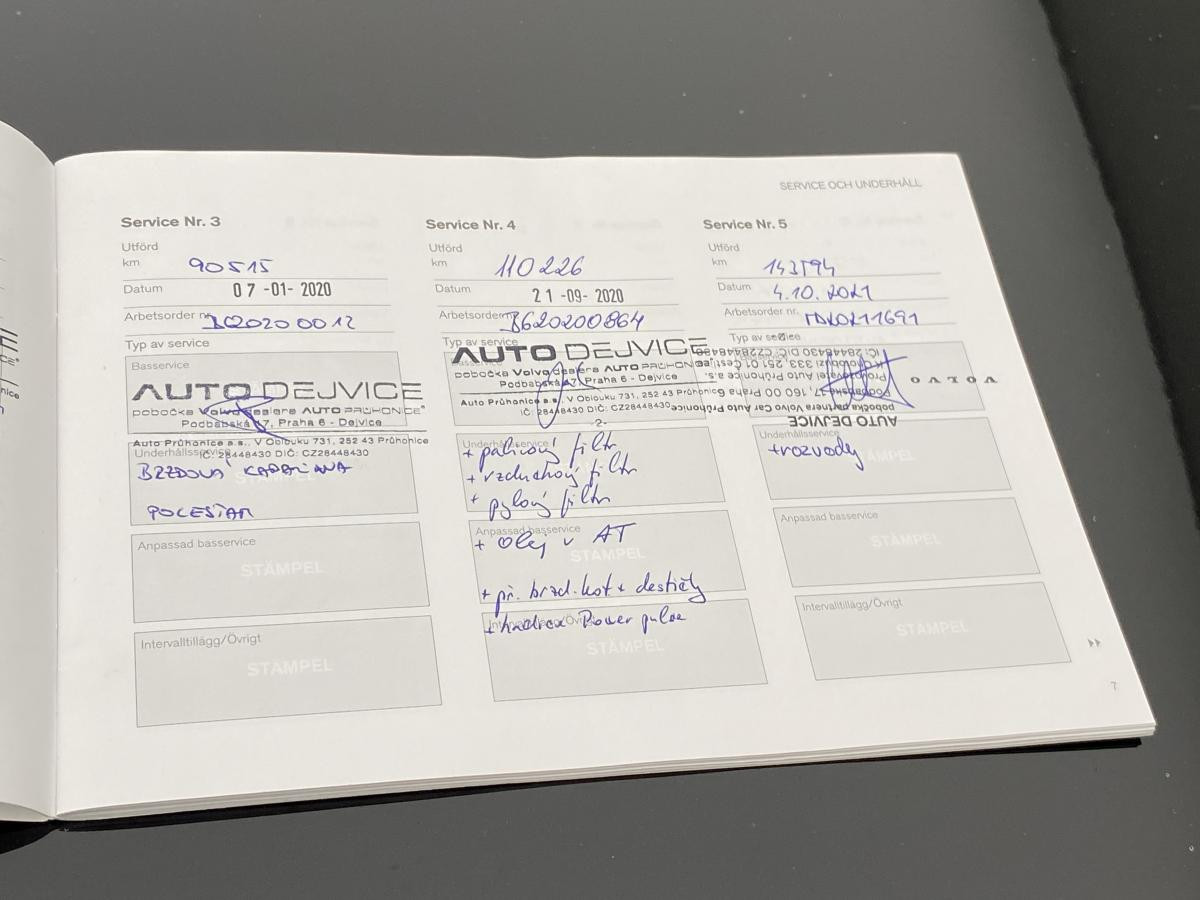 SERVICE OCH UNDERHÅLL
Service Nr. 3
Utförd
km 90515
Datum 07-01-2020
Arbetsorder nr.
Typ av service
Basservice
AUTO DEJVICE
pobočka Volvo dealera AUTO PRŮHONICE
Podbabská 17, Praha 6 - Dejvice
Auto Průhonice a.s., V Oblouku 731, 252 43 Průhonice
IČ: 28448430 DIČ: CZ28448430
Underhållsservice
BRZDOVÁ KAPALINA
POLESTAR
Anpassad basservice
STÄMPEL
Intervalltillägg/Övrigt
STÄMPEL
Service Nr. 4
Utförd
km 110226
Datum 21-09-2020
Arbetsorder
Typ av service
AUTO DEJVICE
pobočka Volvo dealera AUTO PRŮHONICE
Podbabská 17, Praha 6 - Dejvice
Auto Průhonice a.s., V Oblouku 731, 252 43 Průhonice
IČ: 28448430 DIČ: CZ28448430
-2-
Underhållsservice
+ palivový filtr
+ vzduchový filtr
+ pylový filtr
Anpassad basservice
+ olej v AT
STÄMPEL
+ př. brzd. kot + destičky
+ hadice Power pulse
STÄMPEL
Service Nr. 5
Utförd
km
Datum 4.10.2021
Arbetsorder nr.
Typ av service
VOLVO
AUTO DEJVICE
pobočka partnera Volvo Car Auto Průhonice
Podbabská 17, 160 00 Praha 6
Provozovatel Auto Průhonice a.s.
IČ: 28448430 DIČ: CZ28448430
Underhållsservice
+rozvody
STÄMPEL
Anpassad basservice
STÄMPEL
Intervalltillägg/Övrigt
STÄMPEL
7